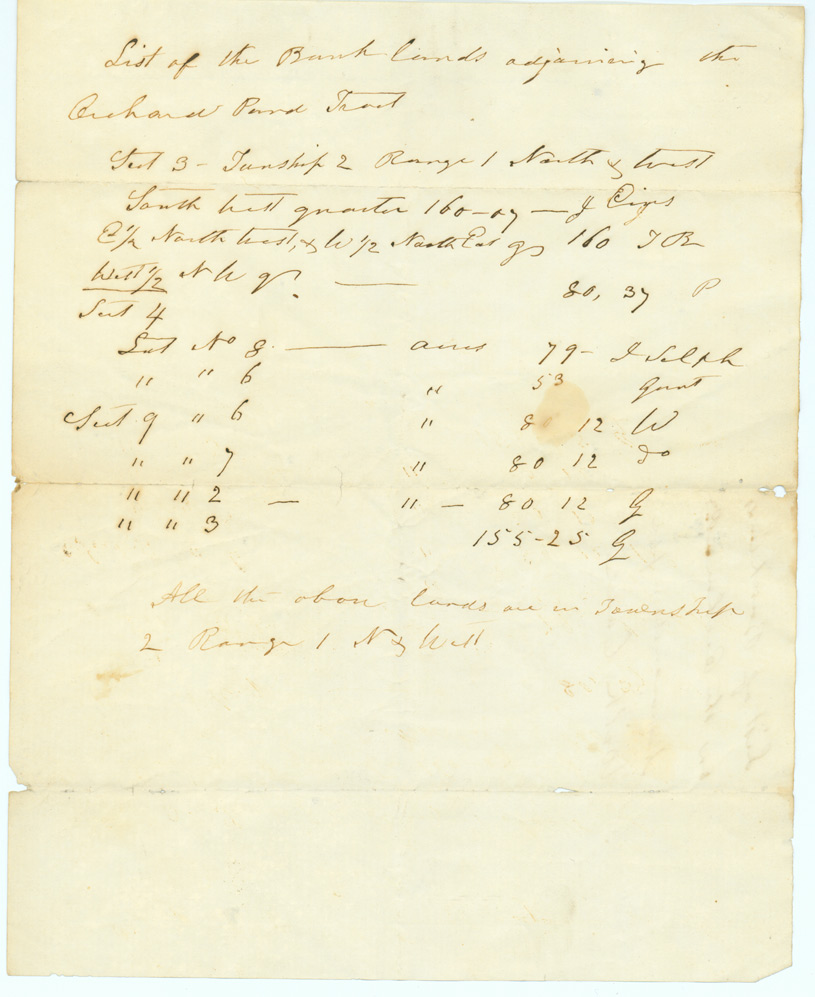 List of the Bank lands adjoining the
Orchard Pond Tract
Sect 3 - Township 2 Range 1 North & West
South West quarter 160-07 — J
E 1/2 North West, & W 1/2 North East qr 160 J B
West 1/2 N W qr — 80, 37 P
Sect 4
Lot No 8 — acres 79 - J
" " 6 " 53 Gant
Sect 9 " 6 " 80 12 W
" " 7 " 80 12 Do
" " 2 — " — 80 12 G
" " 3 155-25 G
All the above lands are in Township
2 Range 1 N & West